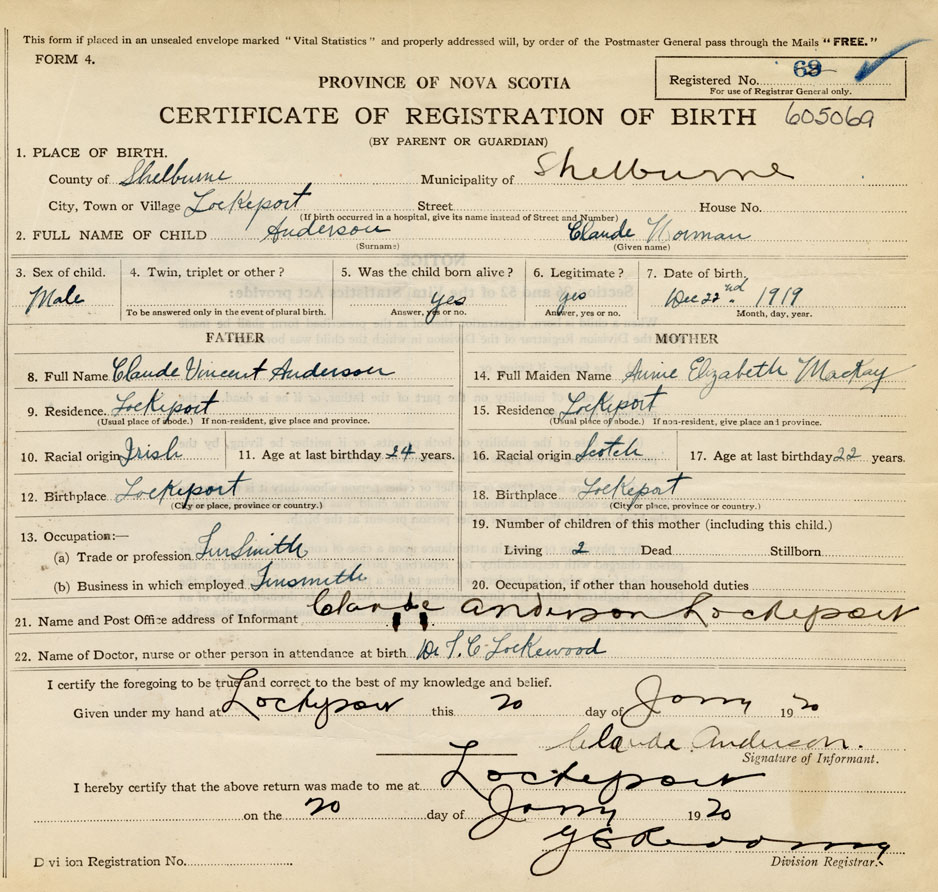 This form if placed in an unsealed envelope marked "Vital Statistics" and properly addressed will, by order of the Postmaster General pass through the Mails "FREE."
FORM 4.
PROVINCE OF NOVA SCOTIA
Registered No. 69
For use of Registrar General only.
CERTIFICATE OF REGISTRATION OF BIRTH 605069
(BY PARENT OR GUARDIAN)
1. PLACE OF BIRTH.
County of Shelburne Municipality of Shelburne
City, Town or Village Lockeport Street House No.
(If birth occurred in a hospital, give its name instead of Street and Number)
2. FULL NAME OF CHILD Anderson Claude Norman
(Surname) (Given name)
3. Sex of child. 4. Twin, triplet or other? 5. Was the child born alive? 6. Legitimate? 7. Date of birth.
Male yes yes Dec 22nd 1919
To be answered only in the event of plural birth. Answer, yes or no. Answer, yes or no. Month, day, year.
FATHER MOTHER
8. Full Name Claude Vincent Anderson 14. Full Maiden Name Annie Elizabeth MacKay
9. Residence. Lockeport 15. Residence Lockeport
(Usual place of abode.) If non-resident, give place and province. (Usual place of abode.) If non-resident, give place and province.
10. Racial origin Irish 11. Age at last birthday 24 years. 16. Racial origin Scotch 17. Age at last birthday 22 years.
12. Birthplace Lockeport 18. Birthplace Lockeport
(City or place, province or country.) (City or place, province or country.)
13. Occupation:— 19. Number of children of this mother (including this child.)
(a) Trade or profession TinSmith Living 2 Dead Stillborn
(b) Business in which employed Tinsmith 20. Occupation, if other than household duties
21. Name and Post Office address of Informant Claude Anderson Lockeport
22. Name of Doctor, nurse or other person in attendance at birth Dr. Lockewood
I certify the foregoing to be true and correct to the best of my knowledge and belief.
Given under my hand at Lockeport this 20 day of Janry 1920
Claude Anderson.
Signature of Informant.
I hereby certify that the above return was made to me at Lockeport
on the 20 day of Janry 1920
Division Registration No. Division Registrar.